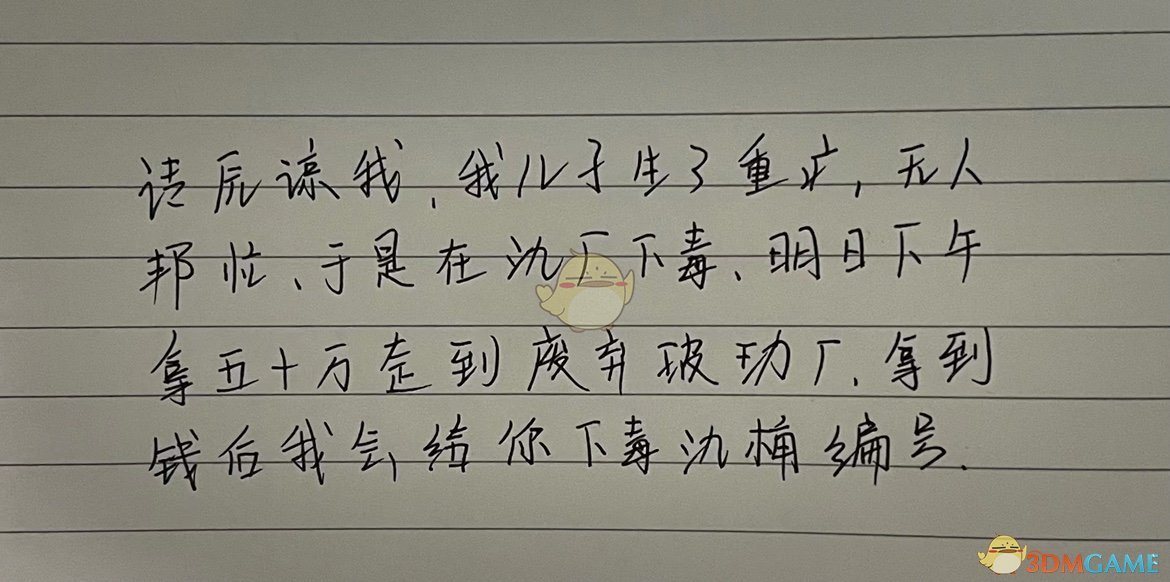 请原谅我,我儿子生了重病,无人
邦忙、于是在氿厂下毒、明日下午
拿五十万走到废弃玻玏厂、拿到
钱后我会给你下毒氿桶编号.
3DMGAME